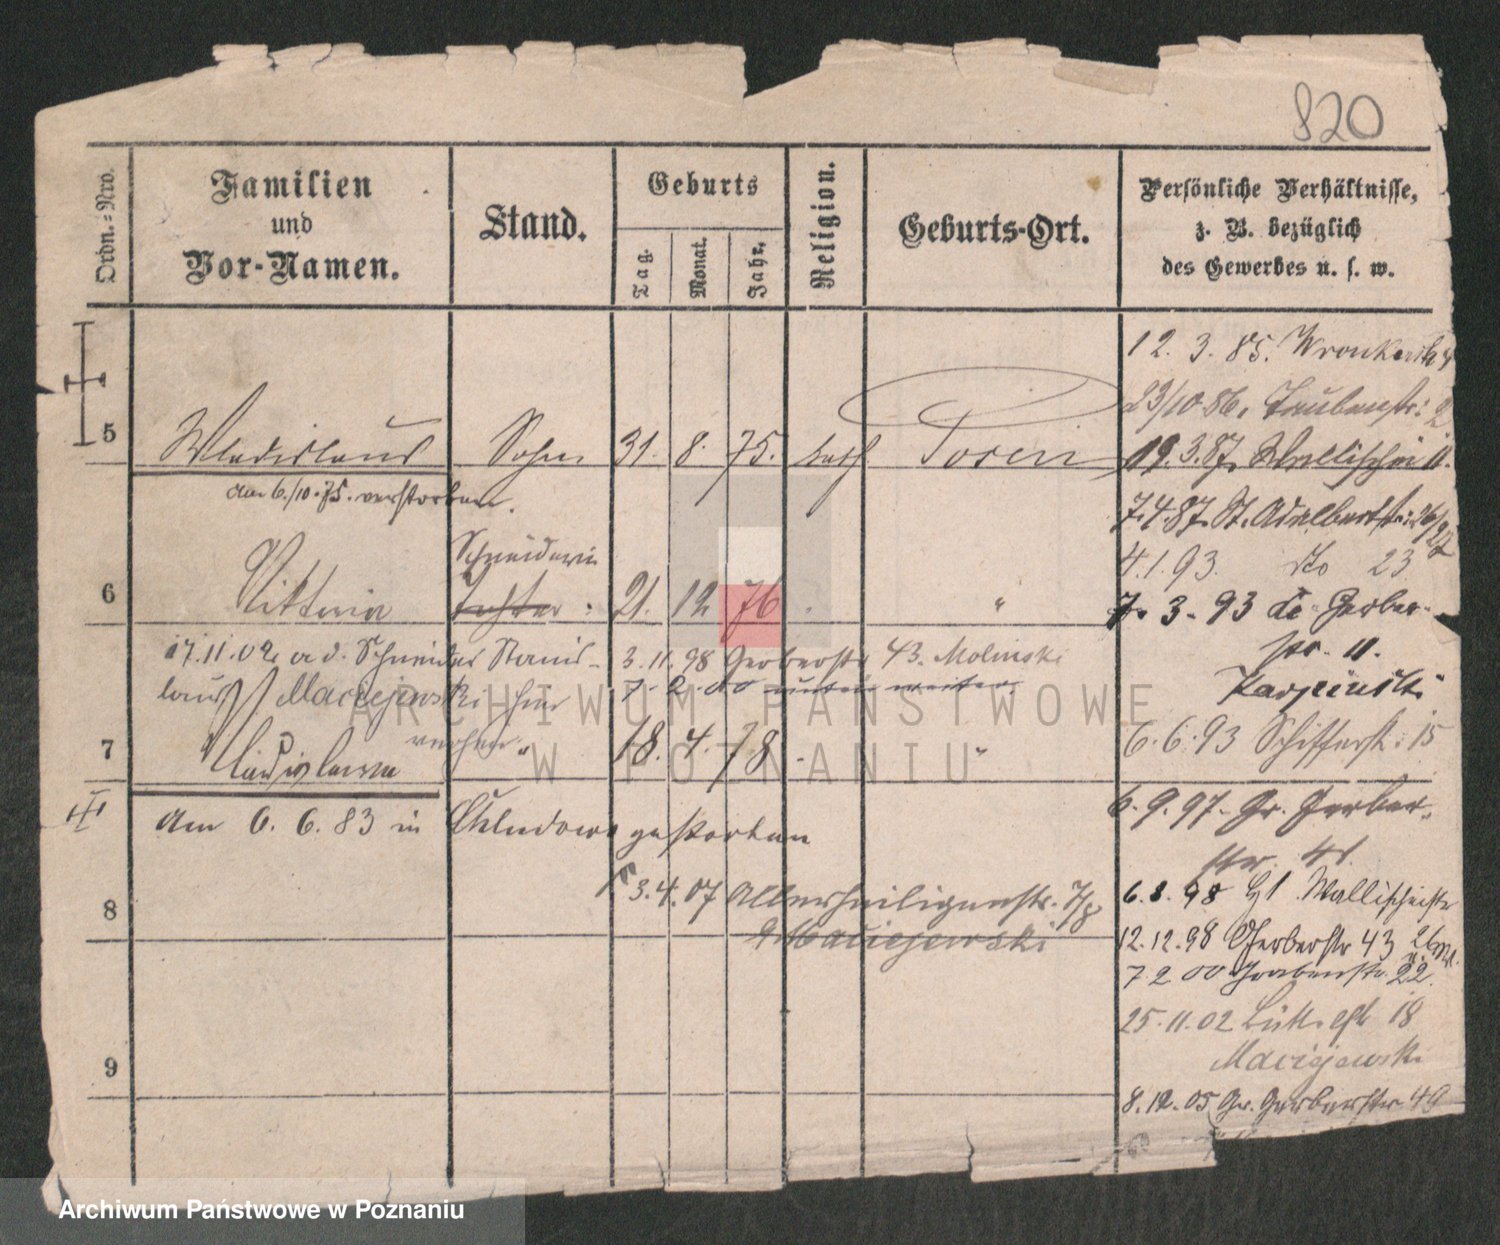 820
Ordn.=Nro.
Familien
und
Vor-Namen.
Stand.
Geburts
Tag.
Monat.
Jahr.
Religion.
Geburts-Ort.
Persönliche Verhältnisse,
z. B. bezüglich
des Gewerbes u. s. w.
5 Wladislaus Sohn 31. 8. 75. kath. Posen
am 6./10.75. verstorben.
6 Viktoria Schneiderin
Tochter 21. 12 76 "
17.11.02 a d. Schneider Stanis-
laus Maciejewski
3.11.98 Gerberstr 43. Molinski
7. 2. 00 unten weiter.
7 Ladislawa " 18. 4. 78. "
am 6. 6. 83 in Chludowo gestorben
8 3.4.07 Allerheiligenstr. 7/8
Maciejewski
9
12. 3. 85. Wronkerstr 4
23/10.86. Taubenstr: 2
19.3.87. Wallischei 11.
7.4.87. St. Adalbertstr: 26/27
4.1.93. do 23
7. 3. 93 Gerber-
str. 11.
Karpinski
6.6.93 Schifferstr. 15
6.9.97. Gr. Gerber-
str. 41.
6.8.98 Wallischeistr
12.12.98 Gerberstr 43
7 2 00 Grabenstr. 22.
25.11.02 18
Maciejewski
8.12.05 Gr. Gerberstr 49
ARCHIWUM PAŃSTWOWE
W POZNANIU
Archiwum Państwowe w Poznaniu